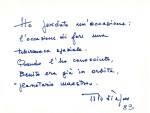 Ho perduto un'occasione:
l'occasione di fare una
passeggiata spaziale.
Quando l'ho conosciuto,
Benito era già in orbita,
planetario maestro.
83